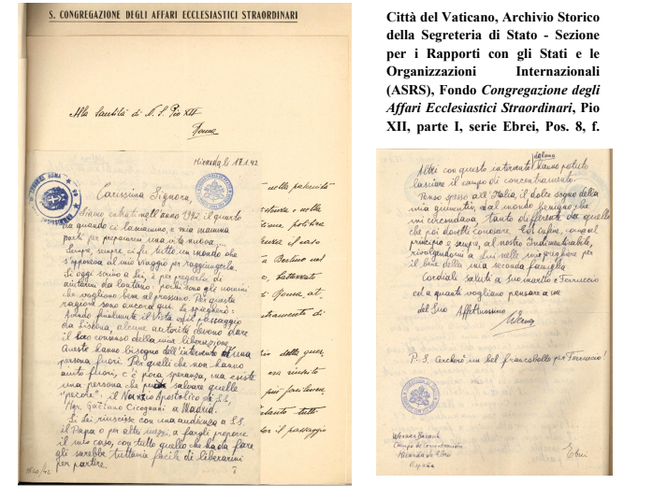 S. CONGREGAZIONE DEGLI AFFARI ECCLESIASTICI STRAORDINARI
Alla Santità di N. S. Pio XII
Roma
Miranda, 17.1.42
Carissima Signora,
siamo entrati nell'anno 1942, il quarto
da quando ci lasciammo, e mia mamma
partì per prepararmi una vita nuova.
sempre ci fu tutto un mondo che
s'opponeva al mio viaggio per raggiungerla.
Se oggi scrivo a Lei, è per pregarla di
aiutarmi da lontano: pochi sono gli uomini
che vogliono bene al prossimo. Per questa
ragione sono ancora qui. Le spiegherò:
Avendo finalmente il visto ed il passaggio
da Lisbona, alcune autorità devono dare
il loro consenso della mia liberazione.
Queste hanno bisogno dell'intervento di una
persona fuori. Per quelli che non hanno
aiuto fuori, c'è poca speranza, ma esiste
una persona che può salvare quelle
"pecore": il Nunzio Apostolico di S.S.
Mgr. Gaetano Cicognani a Madrid.
Se Lei riuscisse con una audienza a S.S.
il Papa o per altri mezzi, a fargli proporre
il mio caso, con tutto quello che ha da fare
gli sarebbe tuttavia facile di liberarmi
per partire.
nella paternità
e nella
politica
il caso
a Berlino nel
Roma, at-
di
tutti
il passaggio
Città del Vaticano, Archivio Storico
della Segreteria di Stato - Sezione
per i Rapporti con gli Stati e le
Organizzazioni Internazionali
(ASRS), Fondo Congregazione degli
Affari Ecclesiastici Straordinari, Pio
XII, parte I, serie Ebrei, Pos. 8, f.
Altri con questo intervento hanno potuto
lasciare il campo di concentramento.
Penso spesso all'Italia, il dolce sogno della
mia gioventù, e al mondo benigno che
mi circondava, tanto differente da quello
che poi dovetti conoscere. Ed infine, come al
principio e sempre, al nostro Indimenticabile,
rivolgendomi a Lui nelle mie preghiere per
il bene della mia seconda famiglia
Cordiali saluti a suo marito e Ferruccio
ed a quanti vogliano pensare a me
del Suo Affettuosissimo
Werner
P. S. Accluderò un bel francobollo per Ferruccio!
Werner Barasch
Campo de Concentración
Miranda de Ebro
España
Ebrei